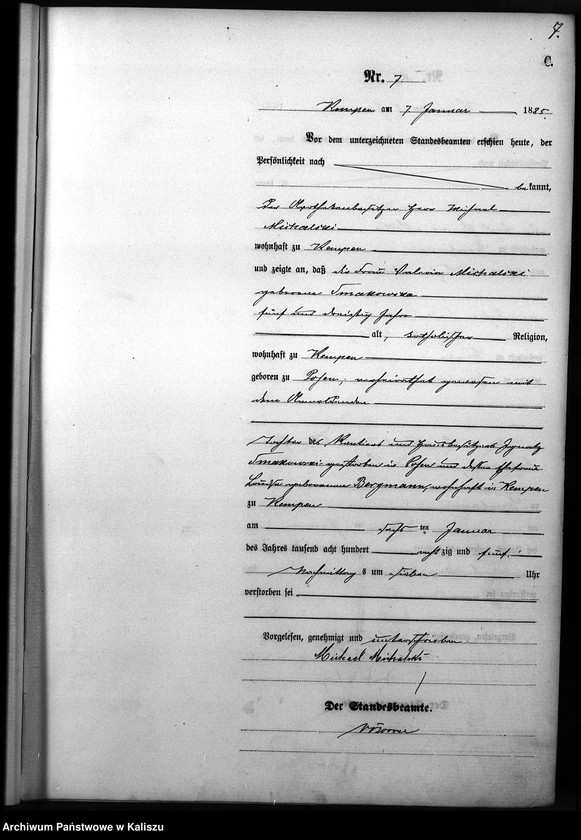 7.
C.
Nr. 7
Kempen am 7 Januar 1885.
Vor dem unterzeichneten Standesbeamten erschien heute, der
Persönlichkeit nach
bekannt,
Der Apothekenbesitzer Herr Michael
Michalski
wohnhaft zu Kempen
und zeigte an, daß die Frau Valeria Michalski
geborene Smakowska
fünf und dreißig Jahre
alt, katholischer Religion,
wohnhaft zu Kempen
geboren zu Posen, verheirathet gewesen mit
dem Anmeldenden
Tochter des und Hausbesitzers Ignatz
Smakowski gestorben in Posen und dessen Ehefrau
Louise geborenen Bergmann, wohnhaft in Kempen
zu Kempen
am sechs ten Januar
des Jahres tausend acht hundert achtzig und fünf
Nachmittags um sieben Uhr
verstorben sei
Vorgelesen, genehmigt und unterschrieben
Michael Michalski
Der Standesbeamte.
Archiwum Państwowe w Kaliszu